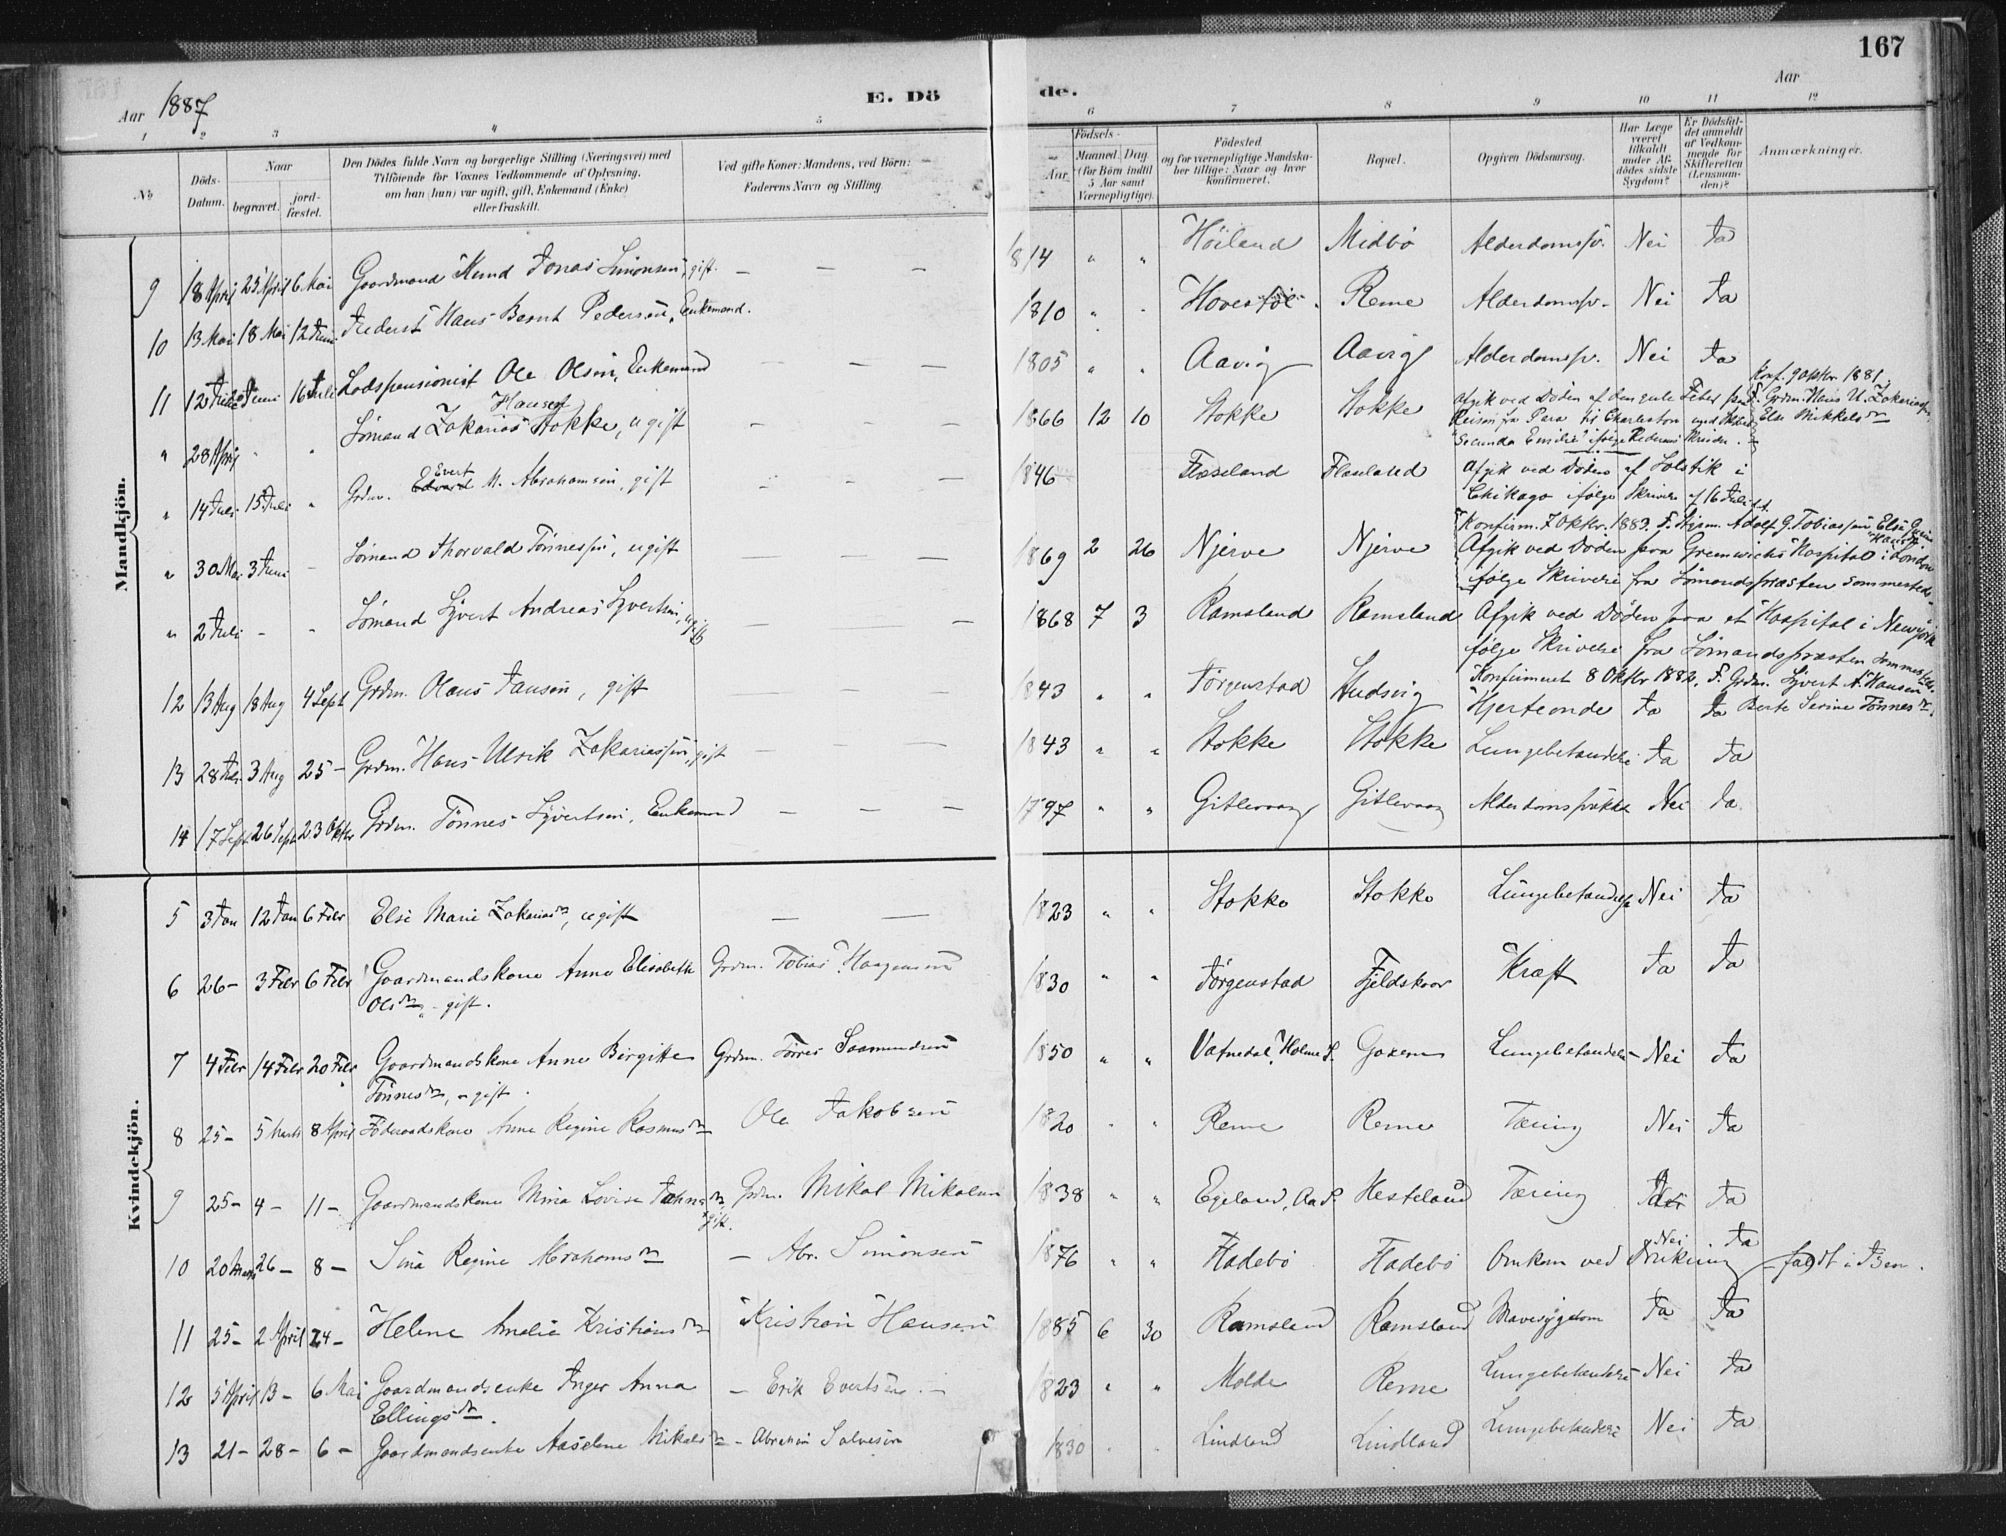 167
Aar 1887
E. Dö de.
Aar
1 2 3 4 5 6 7 8 9 10 11 12
No
Döds-Datum.
Naar
begravet.
jord-fæstet.
Den Dödes fulde Navn og borgerlige Stilling (Næringsvei) med
Tilföiende for Voxnes Vedkommende af Oplysning,
om han (hun) var ugift, gift, Enkemand (Enke)
eller fraskilt.
Ved gifte Koner: Mandens, ved Börn:
Faderens Navn og Stilling
Födsels-
Aar.
Maaned. Dag
(for Börn indtil
5 Aar samt
Værnepligtige).
Födested
og for værnepligtige Mandska-
ber tillige: Naar og hvor
konfirmeret.
Bopæl.
Opgiven Dödsaarsag.
Har Læge
været
tilkaldt
under Af-
dödes sidste
Sygdom?
Er Dödsfal-
det anmeldt
af Vedkom-
mende for
Skifteretten
(Lensman-
den)?
Anmærkninger.
Mandkjön.
9 18 April 25 April 6 Mai Gaardmand Knud Jonas Simonsen, gift. — — — 1814 " " Höiland Midbö Alderdomssv. Nei Ja
10 13 Mai 18 Mai 12 Juni Hans Bernt Pedersen, Enkemand. 1810 " " Reme Alderdomssv. Nei Ja
11 12 Juni 16 Juli Lodspensionist Ole Olsen, Enkemand — — — 1805 " " Aavig Aavig Alderdomssv. Nei Ja
Konf. 9 Oktbr. 1881,
" 28 April " " Sömand Zakarias Hansen Stokke, ugift — — — 1866 12 10 Stokke Stokke Afgik ved Döden af den gule Feber paa F. Grdm. Hans U. Zakariassen
Reisen fra Para til Charleston med Else Mikkelsdr
"Secunda Emilie" ifölge Rederens Skrivelse.
" 14 Juli 15 Juli " Grdm. Edvard Evert M. Abrahamsen, gift — — — 1846 Flaseland Flaseland Afgik ved Döden af Solstik i
Chikago ifölge Skrivelse af 16 Juli
Konfirm. 7 Oktbr. 1883. F. Styrm. Adolf G. Tobiassen, Else
" 30 Mai 3 Juni — Sömand Thorvald Tönnessen, ugift — — — 1869 2 26 Njerve Njerve Afgik ved Döden paa Greenwichs Hospital i London
ifölge Skrivelse fra Sömandspræsten Sommerfeldt.
" 2 Juli — " Sömand Syvert Andreas Syvertsen, ugift — — — 1868 7 3 Ramsland Ramsland Afgik ved Döden paa et Hospital i Newyork
ifölge Skrivelse fra Sömandspræsten
Konfirmeret 8 Oktbr 1882. F. Grdm. Syvert A. Hansen
12 13 Aug 18 Aug 4 Sept Grdm. Olaus Jansen, gift — — 1843 " " Jörgenstad Hudsvig Hjerteonde Ja Ja Berte Serine Tönnesdr.
13 28 Juli 3 Aug 25 — Grdm. Hans Ulrik Zakariassen, gift — — — 1843 " " Stokke Stokke Lungebetændelse Ja Ja
14 17 Sept 26 Sept 23 Oktbr Grdm. Tönnes Syvertsen, Enkemand — — — 1797 " " Gitlevaag Gitlevaag Alderdomssvække Nei Ja
Kvindekjön.
5 3 Jan 12 Jan 6 Febr Else Marie Zakariasdr, ugift — — 1823 " " Stokke Stokke Lungebetændelse Nei Ja
6 26 — 3 Febr 6 Febr Gaardmandskone Anne Elisabeth Grdm. Tobias Haagensen 1830 " " Jörgenstad Fjeldskaar Kræft Ja Ja
Olsdr, gift.
7 4 Febr 14 Febr 20 Febr Gaardmandskone Anne Birgitte Grdm. Törres Saamundsen 1850 " " Vatnedal, Holme S. Lungebetændelse Nei Ja
Tönnesdr, gift.
8 25 — 5 Marts 8 April Föderaadskone Anne Regine Rasmusdr Ole Jakobsen 1820 " " Reme Reme Tæring Nei Ja
9 25 — 4 — 11 — Gaardmandskone Mina Lovise gift. Grdm. Mikal Mikalsen 1838 " " Egeland, Aa S. Hesteland Tæring Ja Ja
10 20 Marts 26 — 8 — Sina Regine Abrahamsdr — Abr. Simonsen 1876 " " Fladebö Fladebö Omkom ved Drukning Nei Ja faldt i
11 25 — 2 April 24 — Helene Amalie Kristiansdr Kristian Hansen 1885 6 30 Ramsland Ramsland Mavesygdom Ja Ja
12 5 April 13 — 6 Mai Gaardmandsenke Inger Anna — Erik Evertsen — 1823 " " Molde Reme Lungebetændelse Nei Ja
Ellingsdr.
13 21 — 28 — 6 — Gaardmandsenke Aaselene Mikalsdr — Abraham Salvesen 1830 " " Lindland Lindland Lungebetændelse Nei Ja